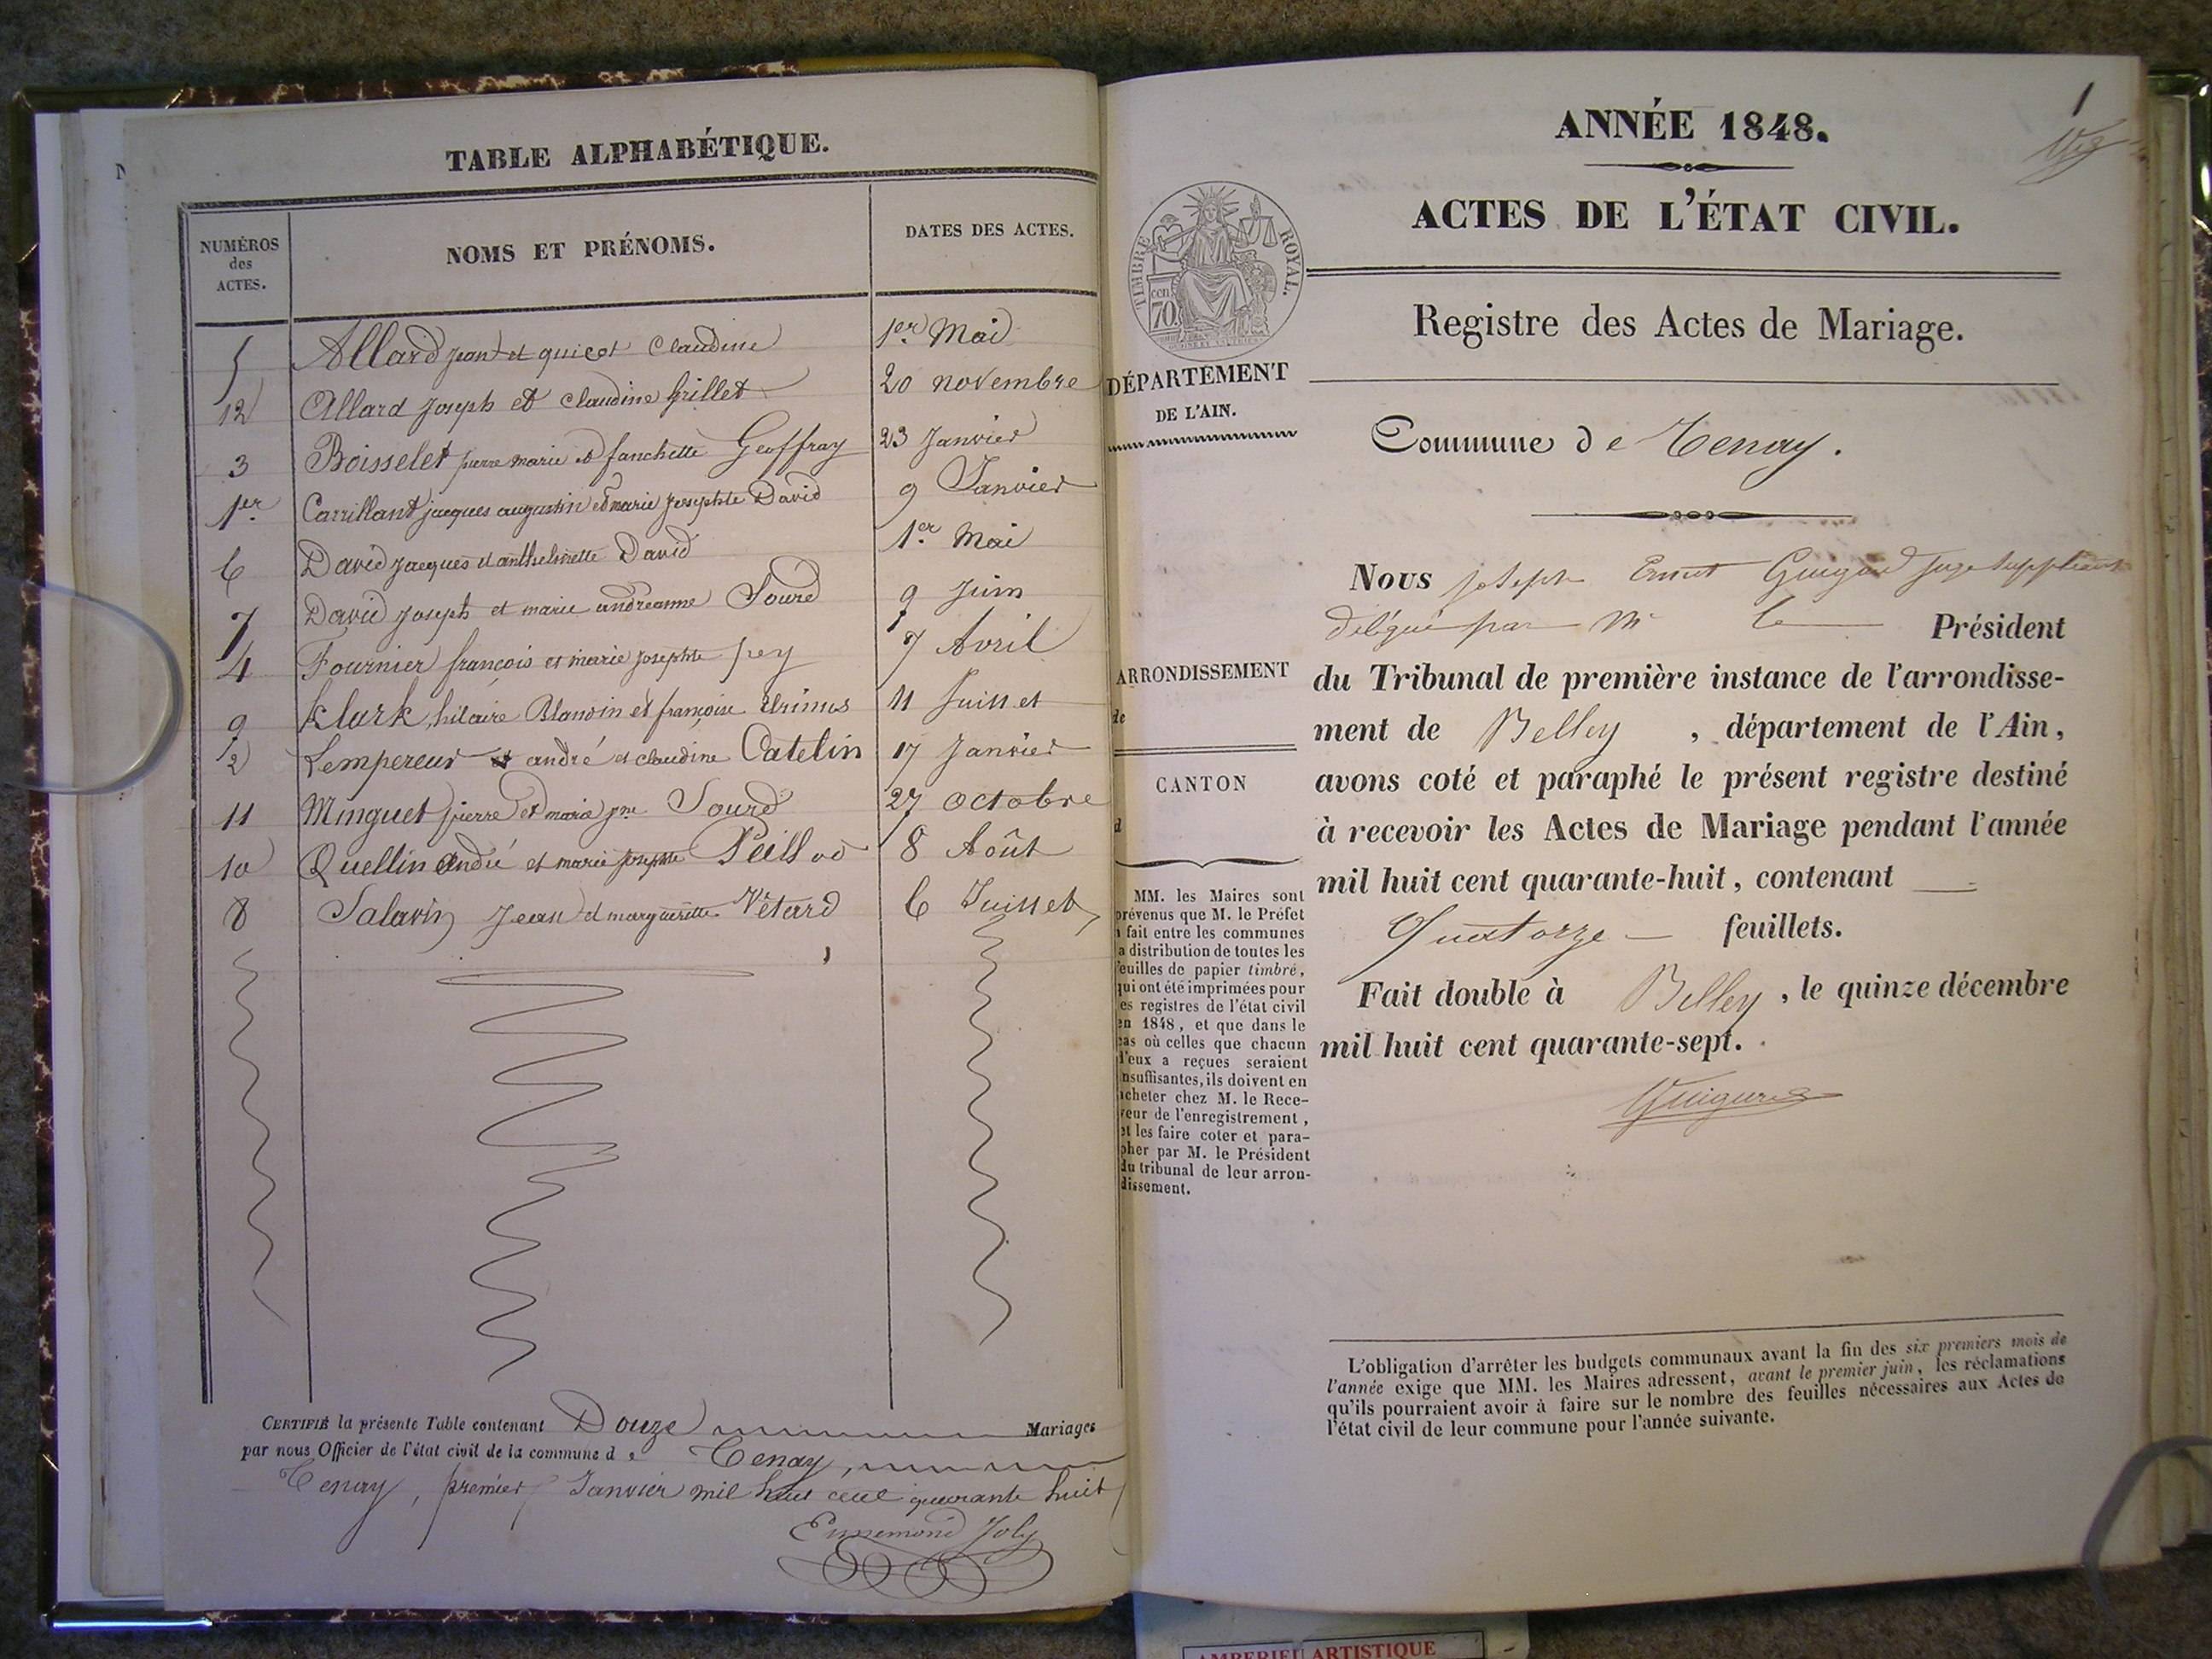 TABLE ALPHABÉTIQUE.
NUMÉROS
des
ACTES.
NOMS ET PRÉNOMS.
DATES DES ACTES.
5 Allard jean et quicot Claudine 1er Mai
12 Allard joseph et claudine Grillet 20 novembre
3 Boisselet pierre marie et fanchette Geoffray 23 Janvier
1er Carrillant jacques augustin et marie josephte David 9 Janvier
6 David jacques et anthelmette David 1er Mai
7 David joseph et marie andréanne Sourd 9 Juin
4 Fournier françois et marie josephte jey 7 Avril
9 Klurk hilaire Blandin et françoise 11 Juillet
2 Lempereur andré et claudine Catelin 17 Janvier
11 Minguet pierre et marie jne Sourd 27 octobre
10 Quellin andré et marie josephte Peillod 8 Août
8 Salavin Jean et margueritte Vétard 6 Juillet
CERTIFIÉ la présente Table contenant Douze Mariages
par nous Officier de l'état civil de la commune de Tenay,
Tenay, premier Janvier mil huit cent quarante huit
Ennemond Joly
1
ANNÉE 1848.
ACTES DE L'ÉTAT CIVIL.
TIMBRE ROYAL.
cen
70
Registre des Actes de Mariage.
DÉPARTEMENT
DE L'AIN.
Commune de Tenay.
Nous joseph Ernest Guigard juge suppléant
délégué par Mr le Président
ARRONDISSEMENT
de
du Tribunal de première instance de l'arrondisse-
ment de Belley , département de l'Ain,
CANTON
d
avons coté et paraphé le présent registre destiné
à recevoir les Actes de Mariage pendant l'année
mil huit cent quarante-huit, contenant
Quatorze feuillets.
Fait double à Belley, le quinze décembre
mil huit cent quarante-sept.
Guigard
MM. les Maires sont
prévenus que M. le Préfet
a fait entre les communes
la distribution de toutes les
feuilles de papier timbré,
qui ont été imprimées pour
les registres de l'état civil
en 1848, et que dans le
cas où celles que chacun
d'eux a reçues seraient
insuffisantes, ils doivent en
acheter chez M. le Rece-
veur de l'enregistrement,
et les faire coter et para-
pher par M. le Président
du tribunal de leur arron-
dissement.
L'obligation d'arrêter les budgets communaux avant la fin des six premiers mois de
l'année exige que MM. les Maires adressent, avant le premier juin, les réclamations
qu'ils pourraient avoir à faire sur le nombre des feuilles nécessaires aux Actes de
l'état civil de leur commune pour l'année suivante.
AMBERIEU ARTISTIQUE